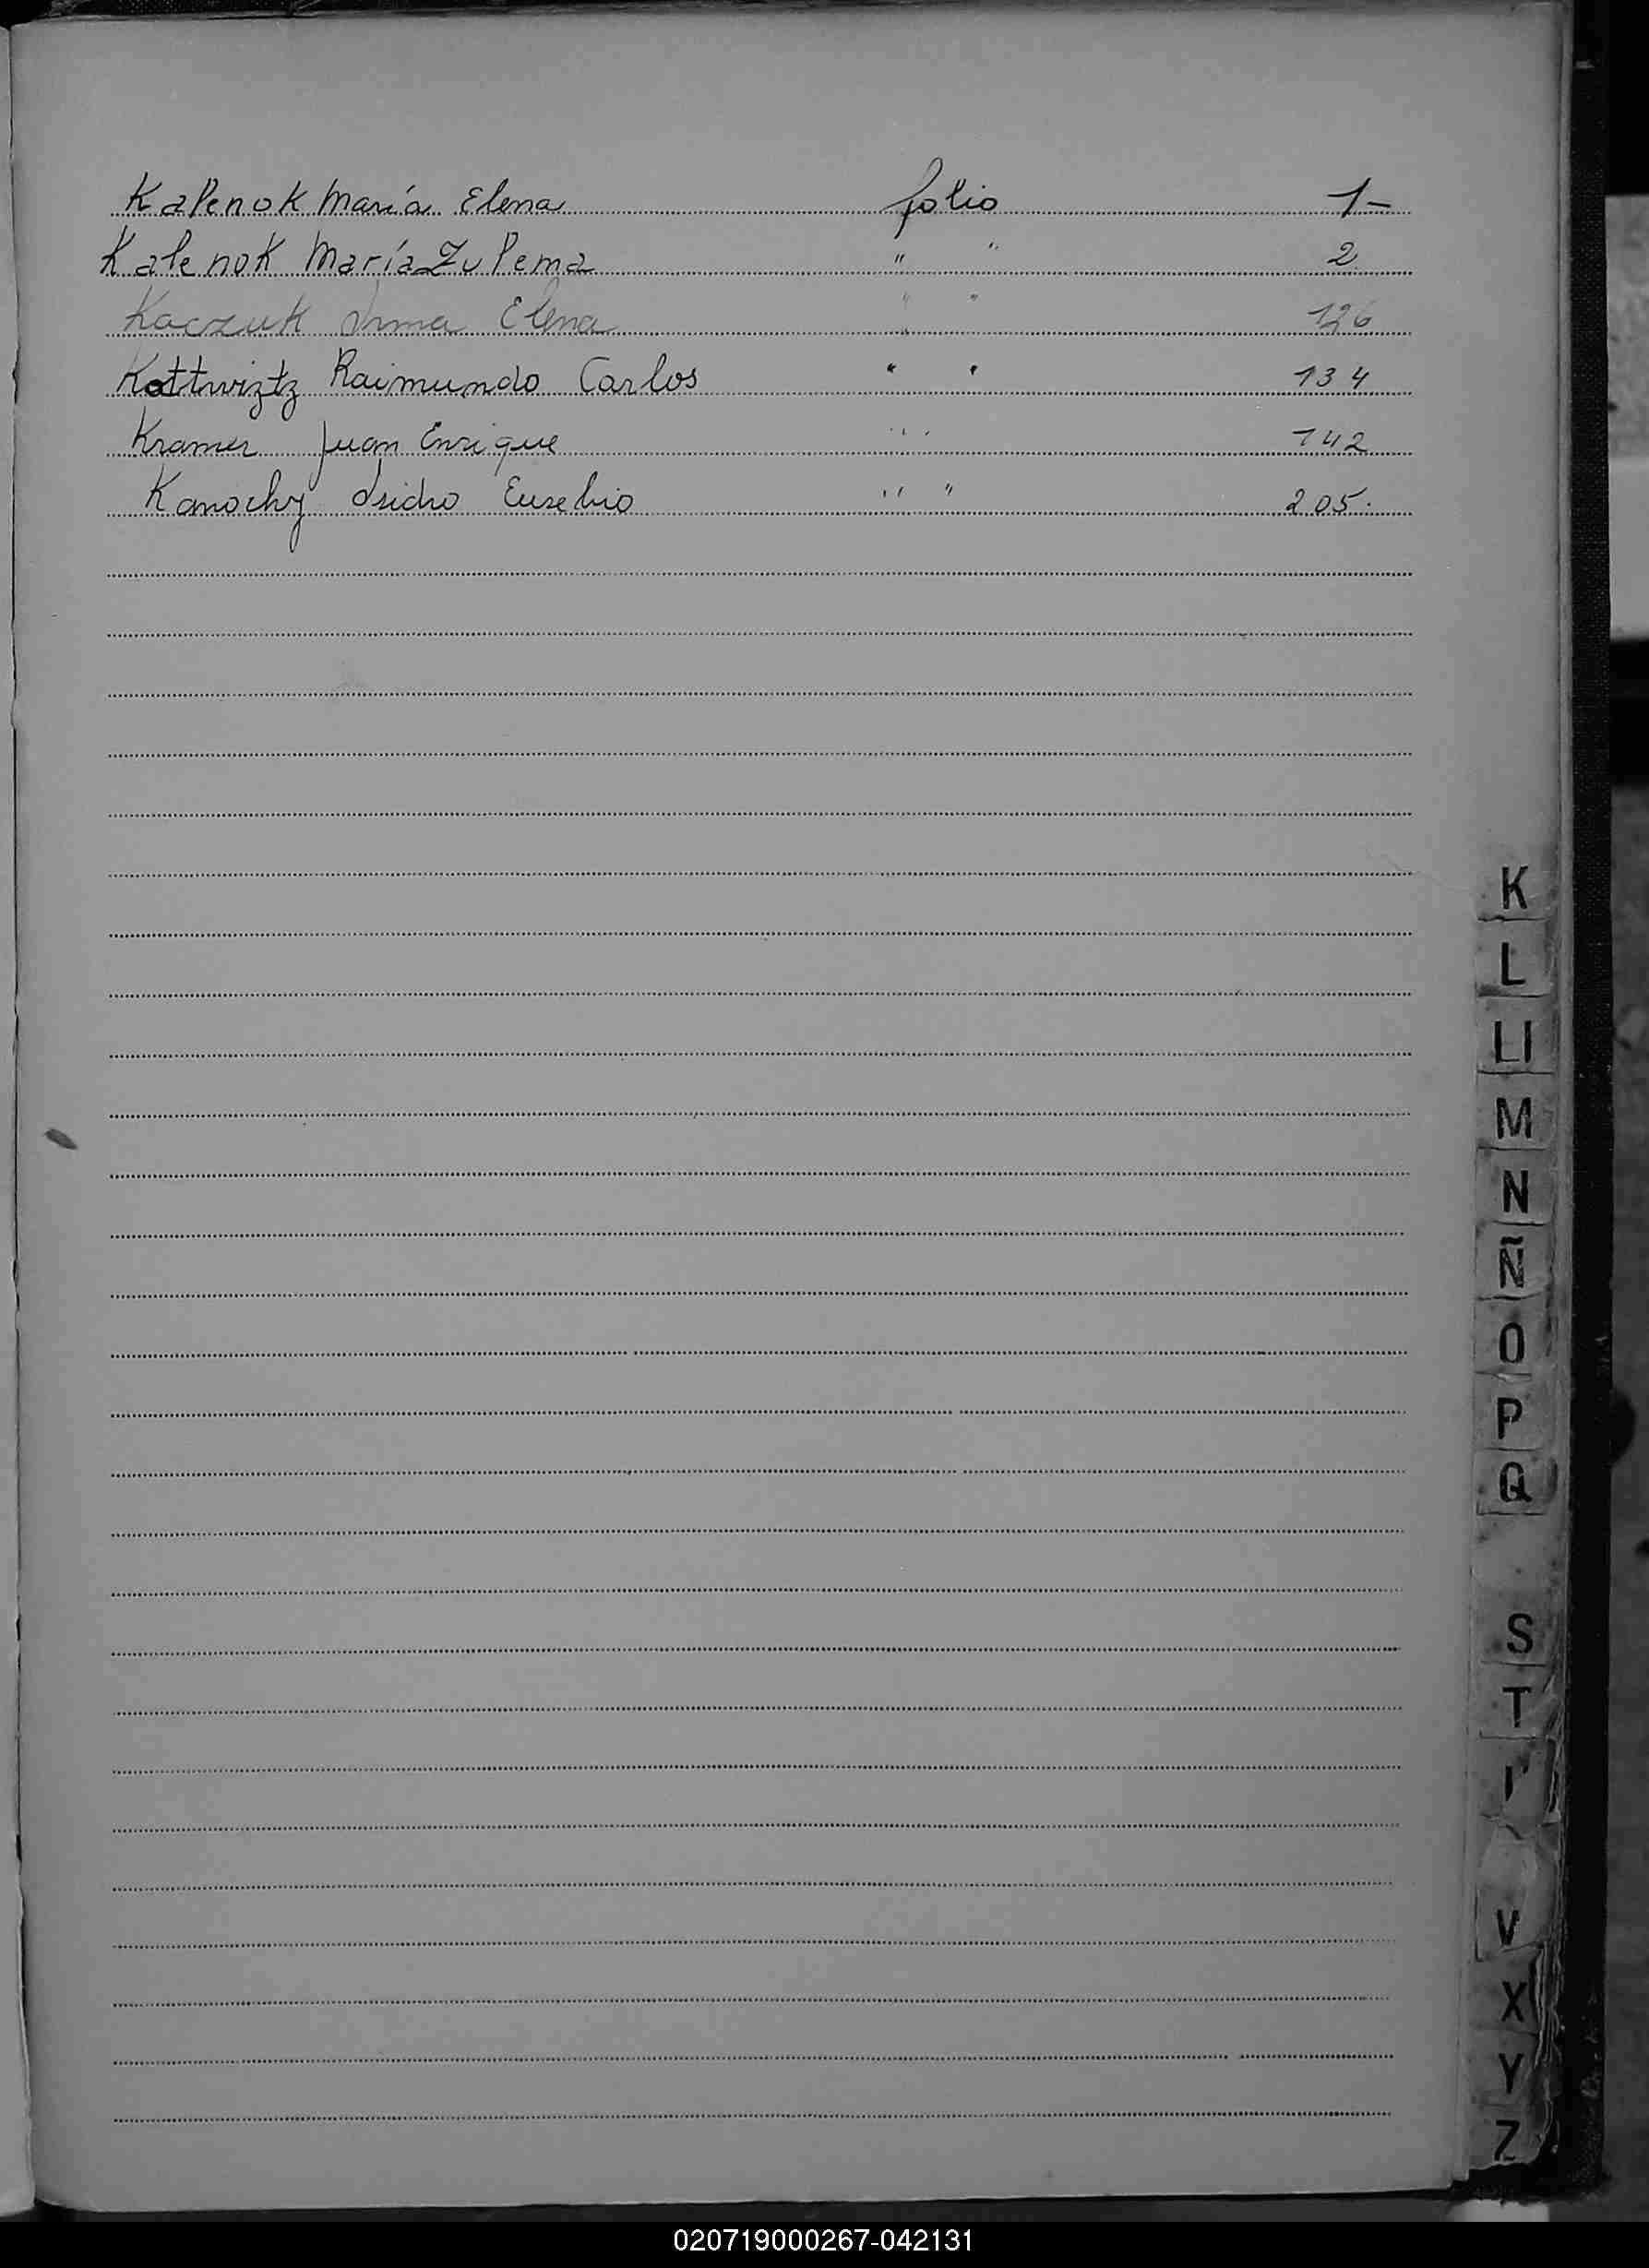 Kalenok María Elena folio 1-
Kalenok María Zulema " " 2
Kaczuk Irma Elena " " 126
Kottwiztz Raimundo Carlos " " 134
Kramer Juan Enrique " " 142
Kanochy Isidro Eusebio " " 205.
K
L
Ll
M
N
Ñ
O
P
Q
S
T
V
X
Y
Z
020719000267-042131